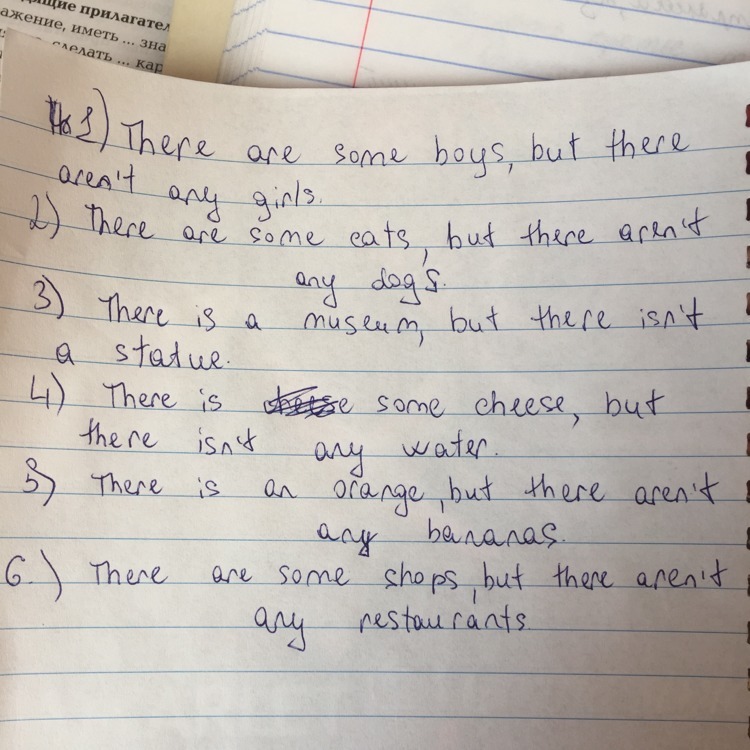 щие прилагател
ажение, иметь ... зна
сделать ... кар
1) There are some boys, but there
aren't any girls.
2) There are some cats, but there aren't
any dogs.
3) There is a museum, but there isn't
a statue.
4) There is some cheese, but
there isn't any water.
5) There is an orange, but there aren't
any bananas.
6.) There are some shops, but there aren't
any restaurants